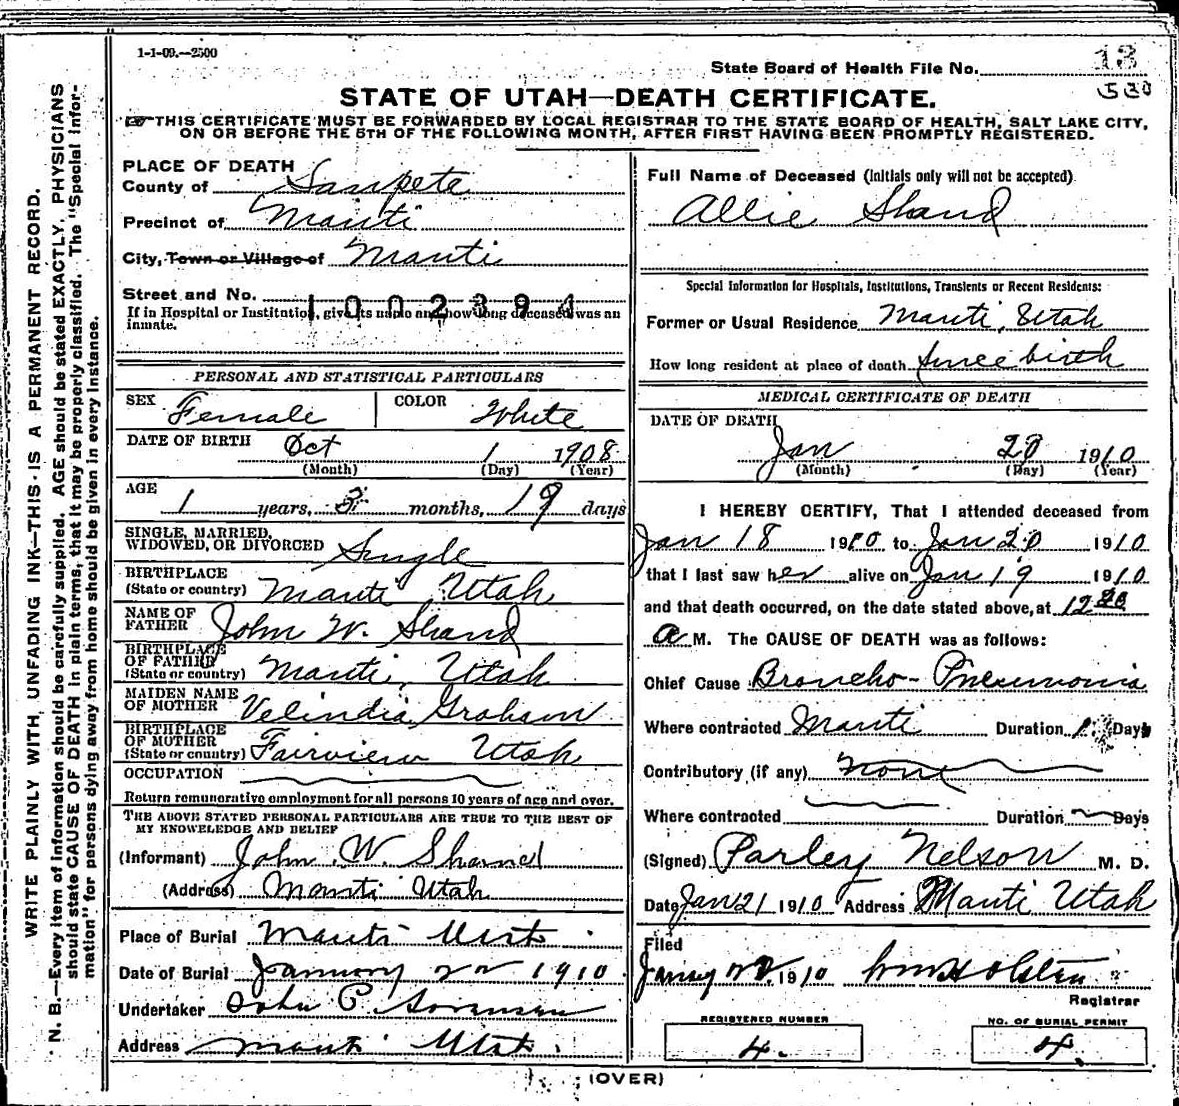 1-1-09.—2500
State Board of Health File No. 13
530
STATE OF UTAH—DEATH CERTIFICATE.
THIS CERTIFICATE MUST BE FORWARDED BY LOCAL REGISTRAR TO THE STATE BOARD OF HEALTH, SALT LAKE CITY,
ON OR BEFORE THE 5TH OF THE FOLLOWING MONTH, AFTER FIRST HAVING BEEN PROMPTLY REGISTERED.
WRITE PLAINLY WITH, UNFADING INK—THIS IS A PERMANENT RECORD.
N. B.—Every item of information should be carefully supplied. AGE should be stated EXACTLY. PHYSICIANS
should state CAUSE OF DEATH in plain terms, that it may be properly classified. The "Special Infor-
mation" for persons dying away from home should be given in every instance.
PLACE OF DEATH
County of Sanpete
Precinct of Manti
City, Town or Village of Manti
Street and No.
1002394
If in Hospital or Institution, give its name and how long deceased was an
inmate.
PERSONAL AND STATISTICAL PARTICULARS
SEX Female COLOR White
DATE OF BIRTH Oct 1 1908
(Month) (Day) (Year)
AGE 1 years, 3 months, 19 days
SINGLE, MARRIED,
WIDOWED, OR DIVORCED Single
BIRTHPLACE
(State or country) Manti Utah
NAME OF
FATHER John W. Shand
BIRTHPLACE
OF FATHER
(State or country) Manti, Utah
MAIDEN NAME
OF MOTHER Velindia Graham
BIRTHPLACE
OF MOTHER
(State or country) Fairview Utah
OCCUPATION
Return remunerative employment for all persons 10 years of age and over.
THE ABOVE STATED PERSONAL PARTICULARS ARE TRUE TO THE BEST OF
MY KNOWELEDGE AND BELIEF
(Informant) John W. Shand
(Address) Manti Utah
Place of Burial Manti Utah
Date of Burial January 22 1910
Undertaker John P. Sorensen
Address Manti Utah.
Full Name of Deceased (Initials only will not be accepted)
Allie Shand
Special Information for Hospitals, Institutions, Transients or Recent Residents:
Former or Usual Residence Manti, Utah
How long resident at place of death since birth
MEDICAL CERTIFICATE OF DEATH
DATE OF DEATH
Jan 20 1910
(Month) (Day) (Year)
I HEREBY CERTIFY, That I attended deceased from
Jan 18 1910 to Jan 20 1910
that I last saw her alive on Jan 19 1910
and that death occurred, on the date stated above, at 12
a M. The CAUSE OF DEATH was as follows:
Chief Cause Broncho-Pneumonia
Where contracted Manti Duration Days
Contributory (if any) none
Where contracted Duration Days
(Signed) Parley Nelson M. D.
Date Jan 21 1910 Address Manti Utah
Filed
January 22. 1910 Wm H Olsten
Registrar
REGISTERED NUMBER
4.
NO. OF BURIAL PERMIT
4.
(OVER)